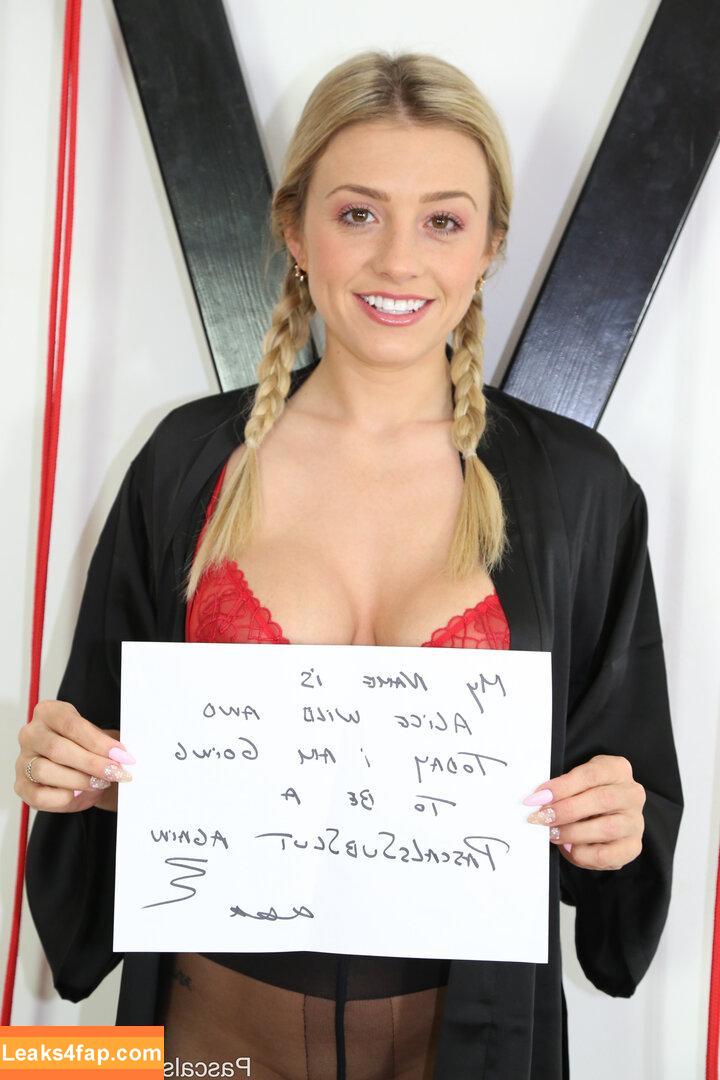 My NAME is
ALICE WILD AND
TODAY i AM GOING
TO BE A
PASCALSSUBSLUT AGAIN
Leaks4fap.com
Pascals